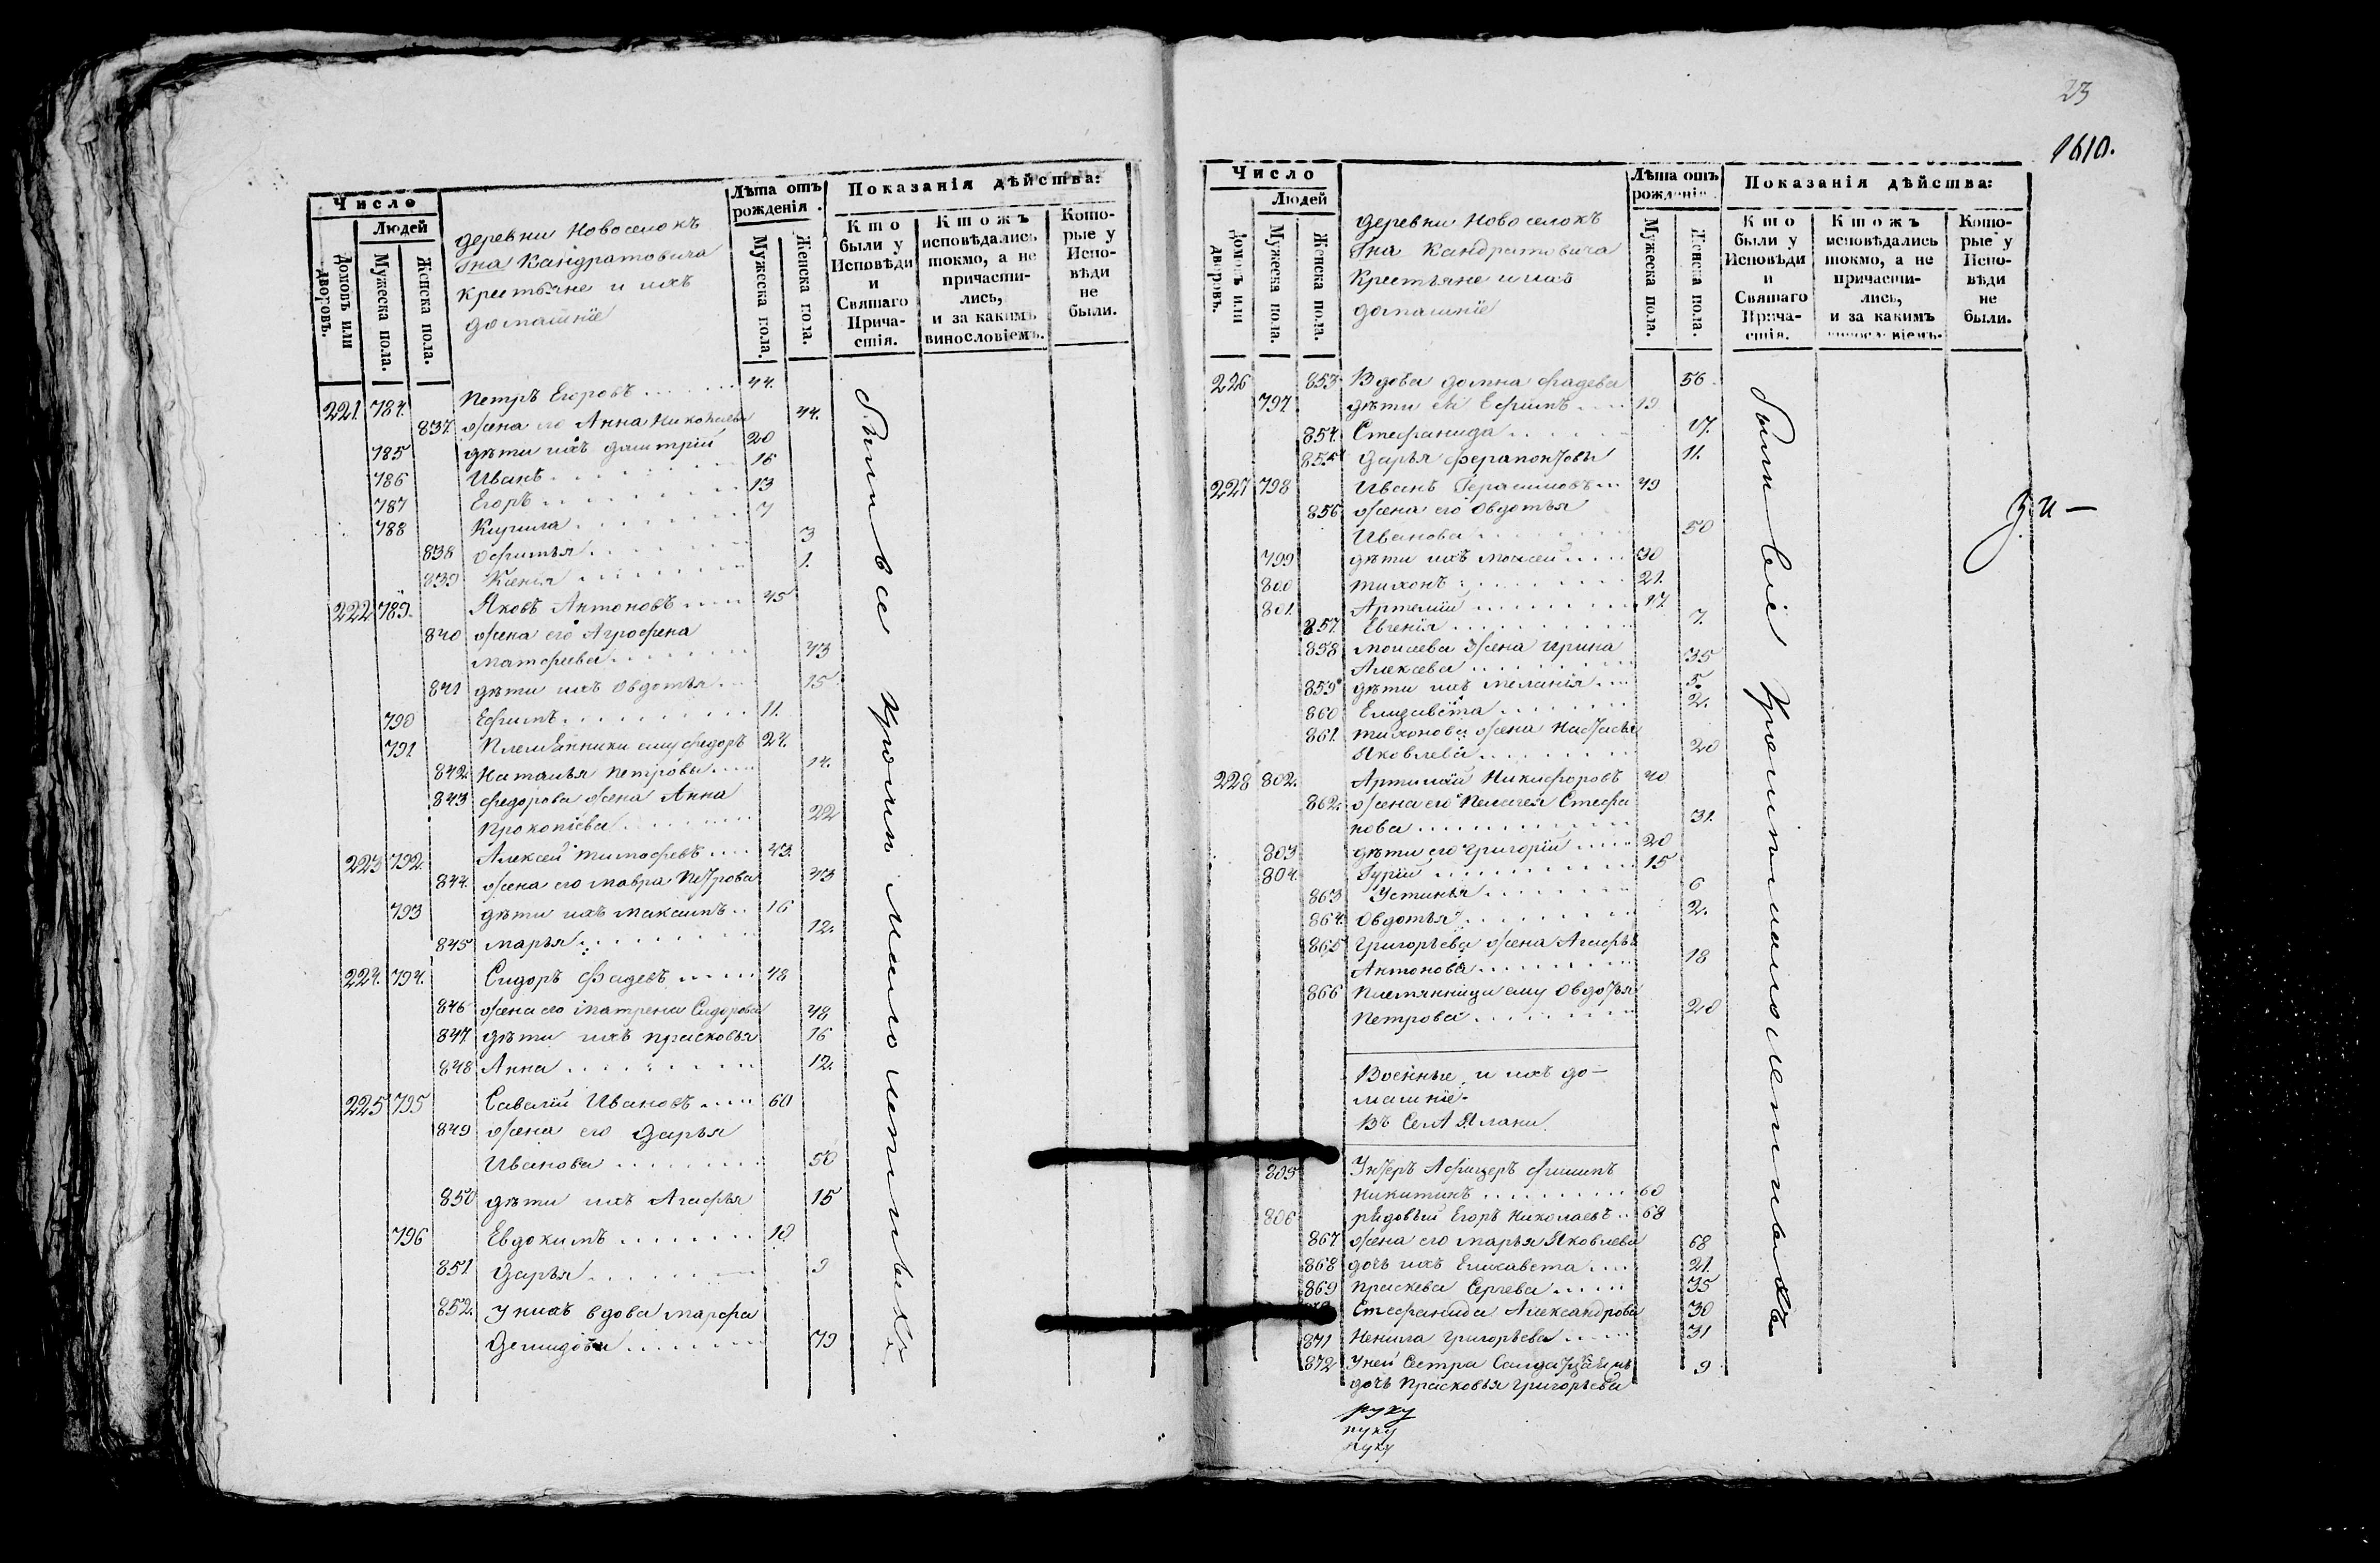 Число
Людей
Домовъ или дворовъ.
Мужеска пола.
Женска пола.
деревни Новоселокъ
Гна Кандратовича
крестьяне и ихъ
домашніе
Лѣта отъ рожденія
Мужеска пола.
Женска пола.
Показанія дѣйства:
Кто были у Исповѣди и Святаго Причастія.
Ктожъ исповѣдались токмо, а не причастились, и за какимъ винословіемъ.
Которые у Исповѣди не были.
221 784 Петръ Егоровъ 44.
837 жена его Анна Николаева 44.
785 дѣти ихъ Дмитрій 20
786 Иванъ 16
787 Егоръ 13
788 Кирила 7
838 Офимья 3
839 Ксенія 1.
222 789. Яковъ Антоновъ 45
840 жена его Агрофена
Матфеева 43
841 дѣти ихъ Овдотья 15
790 Ефимъ 11.
791 Племянники ему Федоръ 24.
842 Наталья Петровы 14.
843 Федорова жена Анна
Прокопіева 22
223 792. Алексей Тимофеевъ 43.
844. жена его Мавра Петрова 43
793 дѣти ихъ Максимъ 16
845 Марья 12.
224. 794. Сидоръ Фадевъ 48
846 жена его Матрена Сидорова 48
847 дѣти ихъ Прасковья 16
848 Анна 12.
225 795 Савелій Ивановъ 60
849 жена его Дарья
Иванова 50
850 дѣти ихъ Агафья 15
796 Евдокимъ 12
851 Дарья 9
852. У нихъ вдова Марфа
Демидова 79
были все кроме малолетныхъ
23
1610.
Число
Людей
Домовъ или дворовъ.
Мужеска пола.
Женска пола.
деревни Новоселокъ
Гна Кандратовича
Крестьяне и ихъ
домашніе
Лѣта отъ рожденія
Мужеска пола.
Женска пола.
Показанія дѣйства:
Кто были у Исповѣди и Святаго Причастія.
Ктожъ исповѣдались токмо, а не причастились, и за какимъ винословіемъ.
Которые у Исповѣди не были.
226 853 Вдова Домна Фадева 56.
797 дѣти ей Ефимъ 19
854. Стефанида 17.
855 Дарья Ферапонтовы 11.
227 798 Иванъ Герасимовъ 49
856 жена его Овдотья
Иванова 50
799 дѣти ихъ Моисей 30
800 Тихонъ 21.
801. Артемій 17.
857. Евгенія 7.
858 Моисеева жена Ирина
Алексева 35
859 дѣти ихъ Меланія 5.
860 Елизавета 2.
861. Тихонова жена Настасья
Яковлева 20
228 802. Артимій Никифоровъ 40
862. жена его Пелагея Стефа
нова 31.
803 дѣти его Григорій 20
804. Гурій 15
863 Устинья 6
864. Овдотья 2.
865 Григорьева жена Агафья
Антонова 18
866 Племянница ему Овдотья
Петрова 20
Военные и ихъ до-
машніе.
Въ Селѣ Ялани.
805 Унтеръ Афицеръ Филипъ
Никитинъ 60
806 рядовый Егоръ Николаевъ 68
867 жена его Марья Яковлева 68
868 дочь ихъ Елисавета 21.
869 Праскева Сергева 35
Стефанида Александрова 30
871 Ненила Григорьева 31
872 У ней Сестра
дочь Прасковья Григорьева 9
руку
руку
руку
были все кроме малолетныхъ